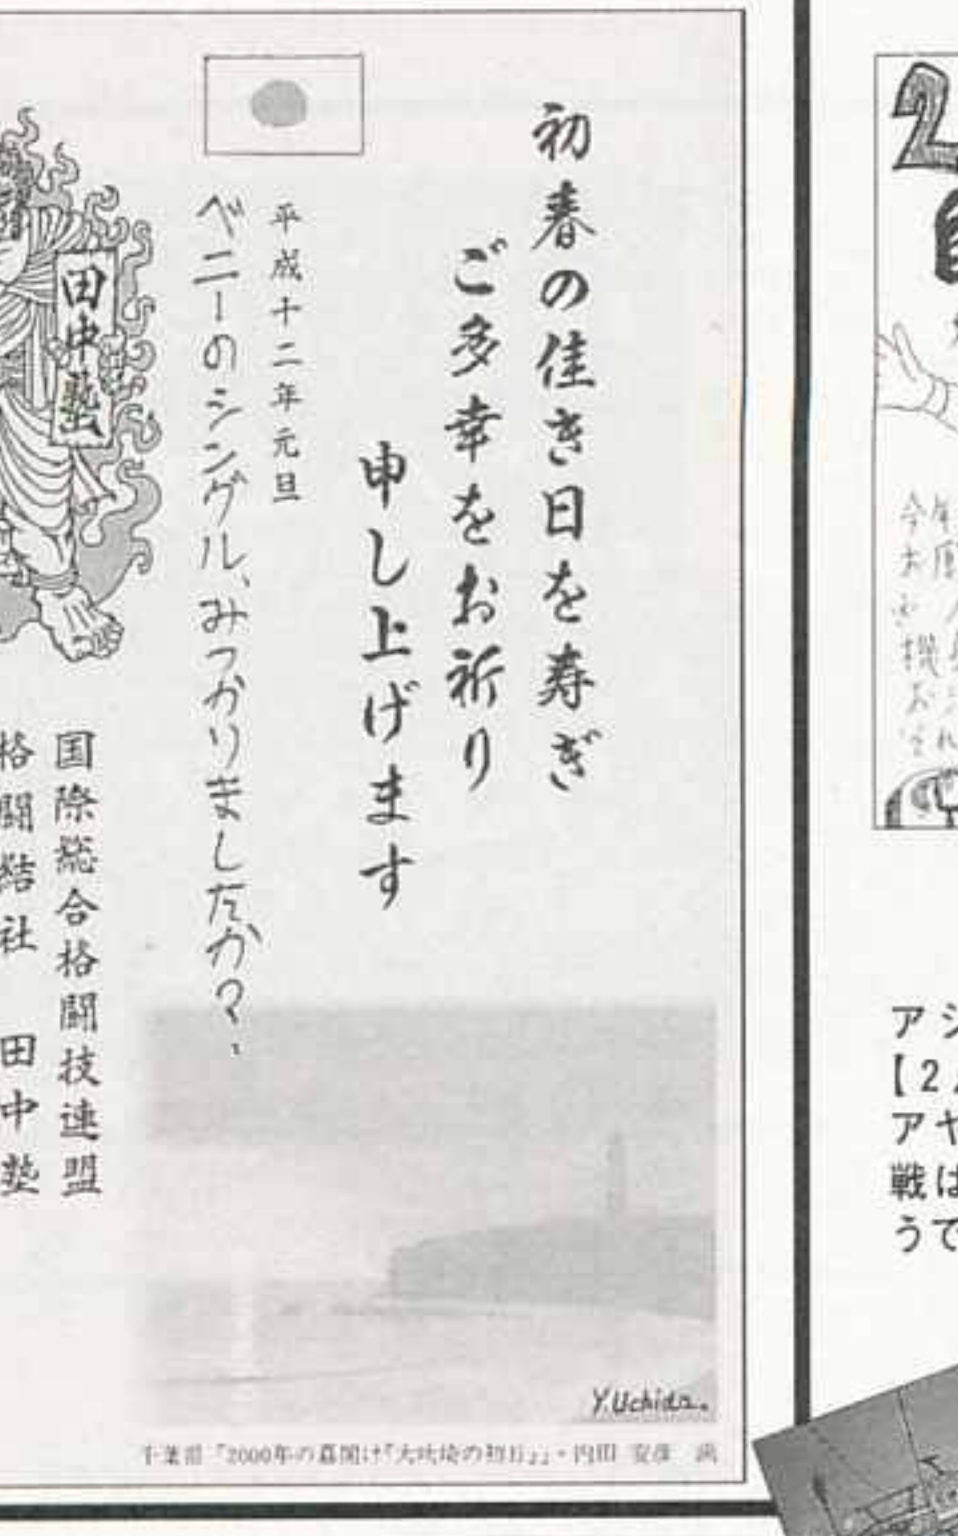 初春の佳き日を寿ぎ
ご多幸をお祈り
申し上げます
平成十二年元旦
ベニーのシングル、みつかりましたか?
田中塾
国際総合格闘技連盟
格闘結社 田中塾
Y.Uchida.
千葉県「2000年の幕開け『犬吠埼の初日』」・内田 安彦 画
2
アシ
【2
アヤ
戦は
うで